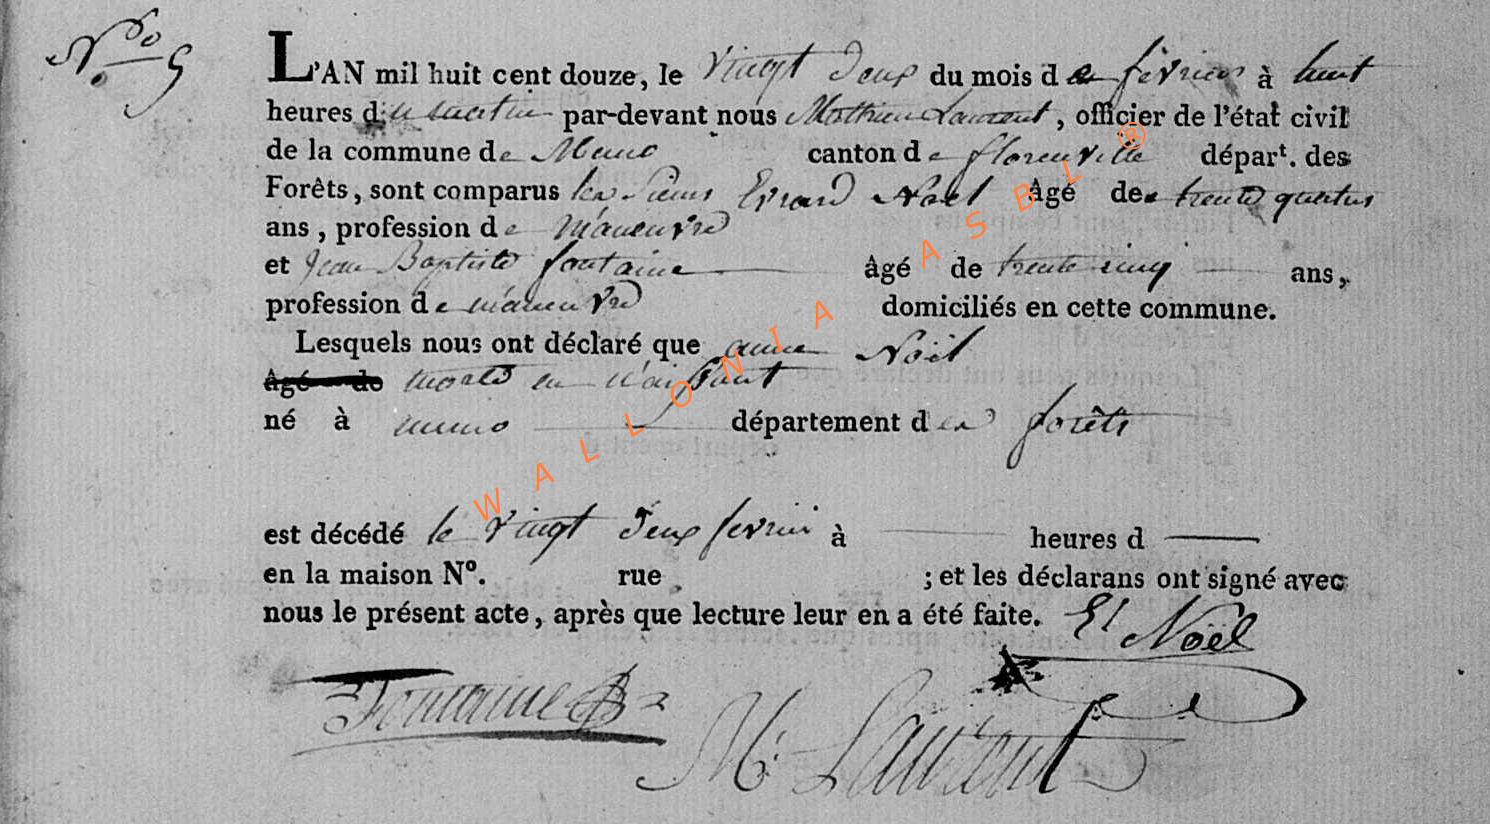 N.ro 5
L'AN mil huit cent douze, le vingt deux du mois de fevrier à huit
heures du matin par-devant nous Mathieu Laurent, officier de l'état civil
de la commune de Muno canton de florenville départ. des
Forêts, sont comparus les sieurs Evrard Noël âgé de trente quatre
ans, profession de manœuvre
et Jean Baptiste fontaine âgé de trente cinq ans,
profession de manœuvre domiciliés en cette commune.
Lesquels nous ont déclaré que anne Noël
âgé de morte en naissant
né à muno département des forêts
est décédé le vingt deux fevrier à heures d
en la maison N°. rue ; et les déclarans ont signé avec
nous le présent acte, après que lecture leur en a été faite. Noël
Fontaine M. Laurent
WALLONIA ASBL ®